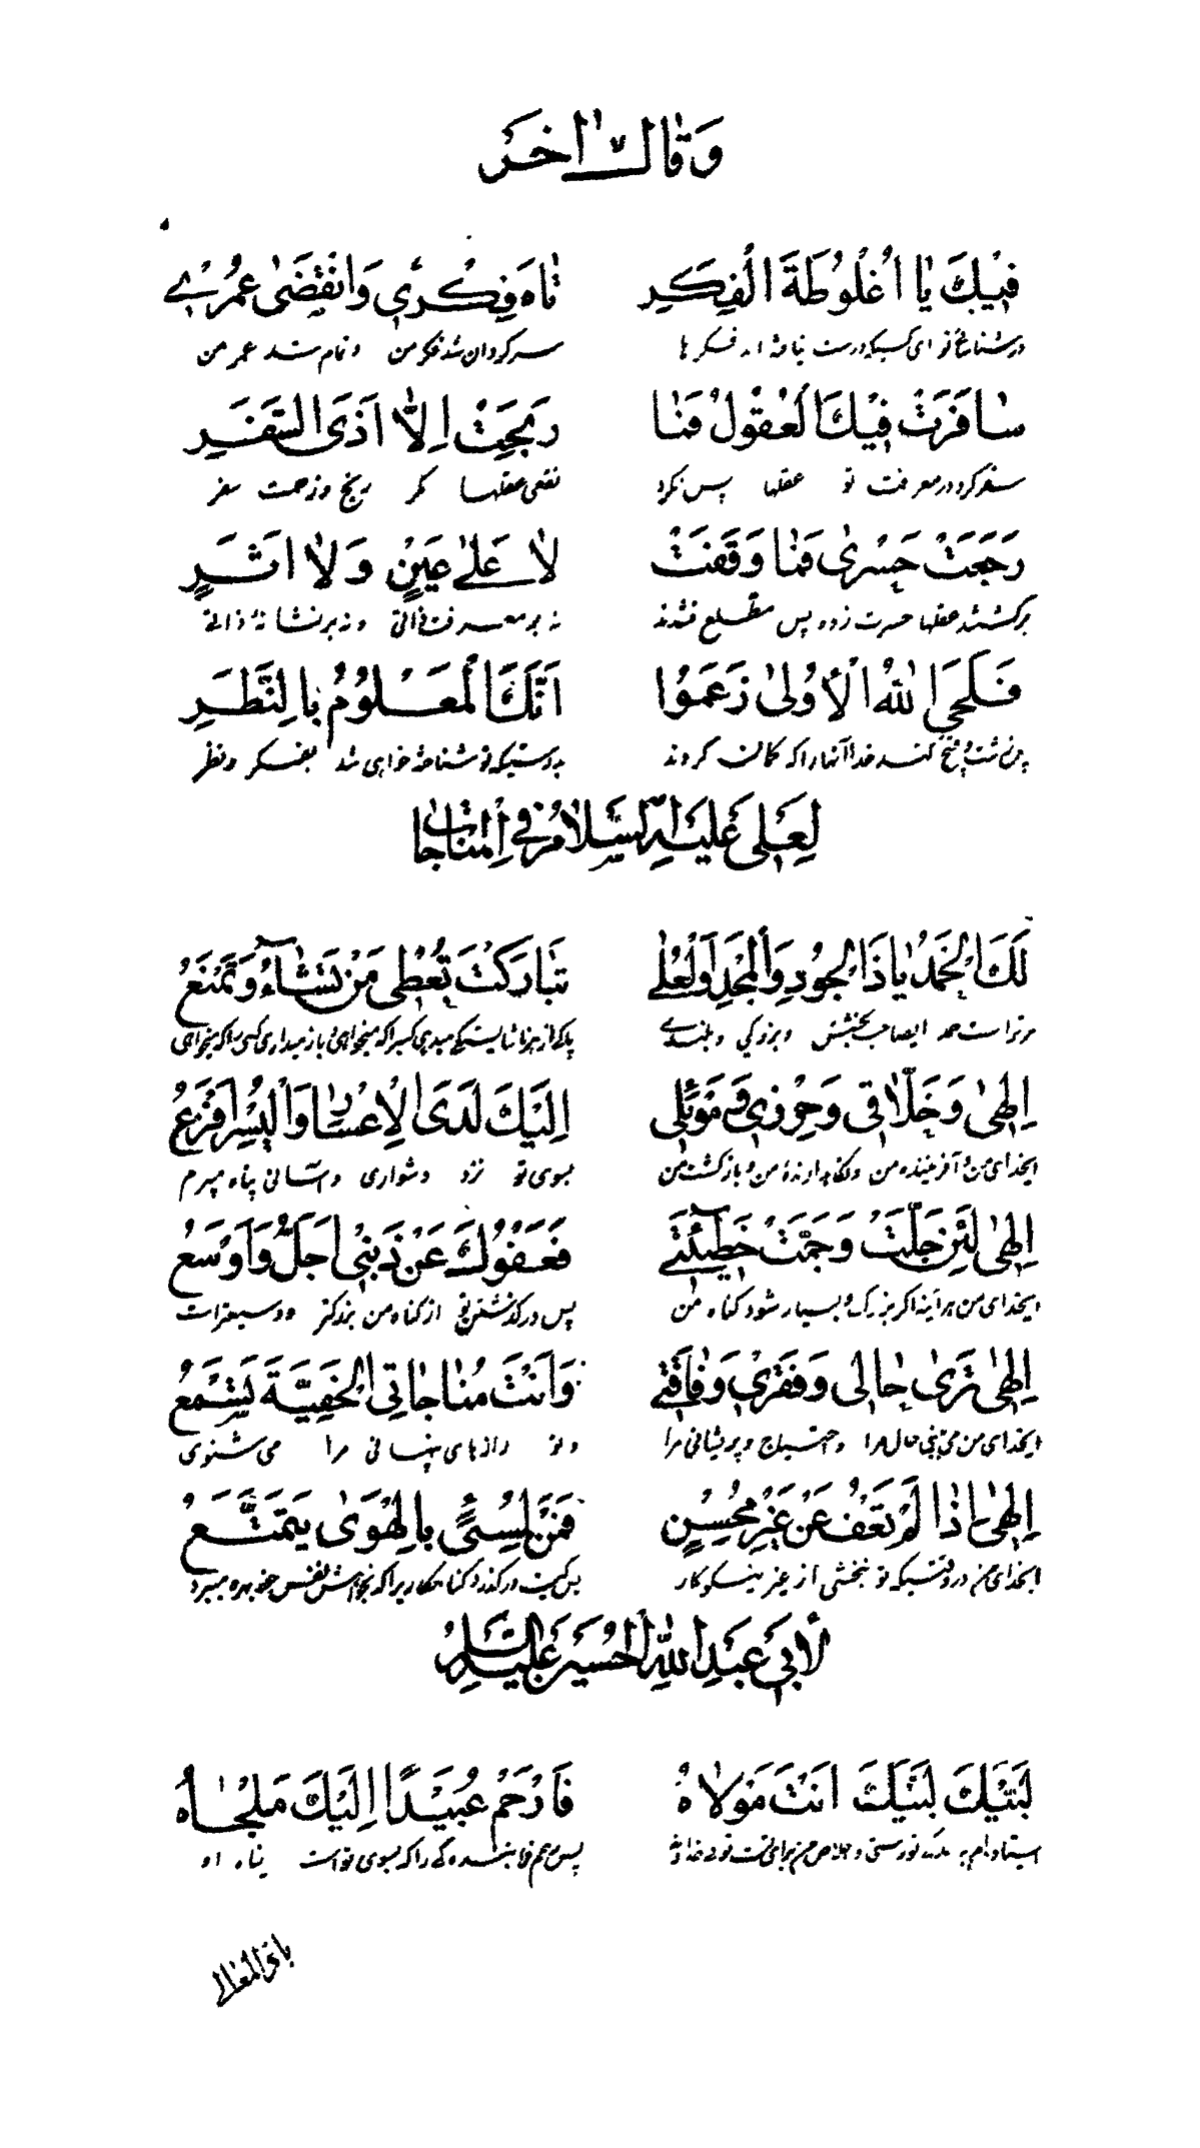 وَقَالَ اٰخَر
فِيْكَ يٰا اُغْلُوطَةَ الْفِكَرِ تٰاهَ فِكْرِي وَانْقَضىٰ عُمُرِي
در شناسائی تو ای کسیکه درست نیافته اند فکرها سرگردان شد فکر من و تمام شد عمر من
سٰافَرَتْ فِيْكَ الْعُقُوْلُ فَمٰا رَبِحَتْ اِلّٰا اَذَى السَّفَرِ
سفر کرد در معرفت تو عقلها پس نکرد نفعی عقلها مگر رنج و زحمت سفر
رَجَعَتْ حَسْرىٰ فَمٰا وَقَفَتْ لٰا عَلىٰ عَيْنٍ وَلٰا اَثَرٍ
برگشتند عقلها حسرت زده پس مطّلع نشدند نه بر معرفت ذاتی و نه بر نشانهٔ ذاته
فَلَحَى اللهُ الْأُوْلىٰ زَعَمُوا اَنَّكَ الْمَعْلُوْمُ بِالنَّظَرِ
کند خدا آنها را که گمان کردند بدرستیکه تو شناخته خواهی شد بفکر و نظر
لِعَلِي عَلَيْهِ السَّلَامُ فِي الْمُنَاجَات
لَكَ الْحَمْدُ يٰا ذَا الْجُوْدِ وَالْمَجْدِ وَالْعُلىٰ تَبٰارَكْتَ تُعْطِي مَنْ تَشٰآءُ وَتَمْنَعُ
مر تو راست حمد ایصاحب بخشش و بزرگی و بلندی
اِلٰهِي وَخَلّٰاقِي وَحِرْزِي وَمَوْئِلِي اِلَيْكَ لَدَى الْاِعْسٰارِ وَالْيُسْرِ اَفْزَعُ
ایخدای من و آفریننده من و نگاه دارندهٔ من و بازگشت من بسوی تو نزد دشواری و آسانی پناه میبرم
اِلٰهِي لَئِنْ جَلَّتْ وَجَمَّتْ خَطِيْئَتِي فَعَفْوُكَ عَنْ ذَنْبِي اَجَلُّ وَاَوْسَعُ
ایخدای من هر آینه اگر بزرگ و بسیار شود گناه من پس درگذشتن تو از گناه من بزرگتر و وسیعتر است
اِلٰهِي تَرىٰ حٰالِي وَفَقْرِي وَفٰاقَتِي وَاَنْتَ مُنٰاجٰاتِي الْخَفِيَّةَ تَسْمَعُ
ایخدای من می بینی حال مرا و احتیاج و پریشانی مرا و تو رازهای پنهانی مرا می شنوی
اِلٰهِي اِذٰا لَمْ تَعْفُ عَنْ غَيْرِ مُحْسِنٍ فَمَنْ لِمُسِيْئٍ بِالْهَوىٰ يَتَمَتَّعُ
ایخدای من در وقتیکه تو نبخشی از غیر نیکوکار پس کیست درگذرد گناهکاریرا که بخواهش نفس خود بهره میبرد
لِأَبِي عَبْدِ اللهِ الْحُسَيْن عَلَيْهِ السَّلَام
لَبَّيْكَ لَبَّيْكَ اَنْتَ مَوْلٰاهُ فَارْحَمْ عُبَيْدًا اِلَيْكَ مَلْجٰاهُ
پس رحم فرما بنده گی را که بسوی تو است پناه او